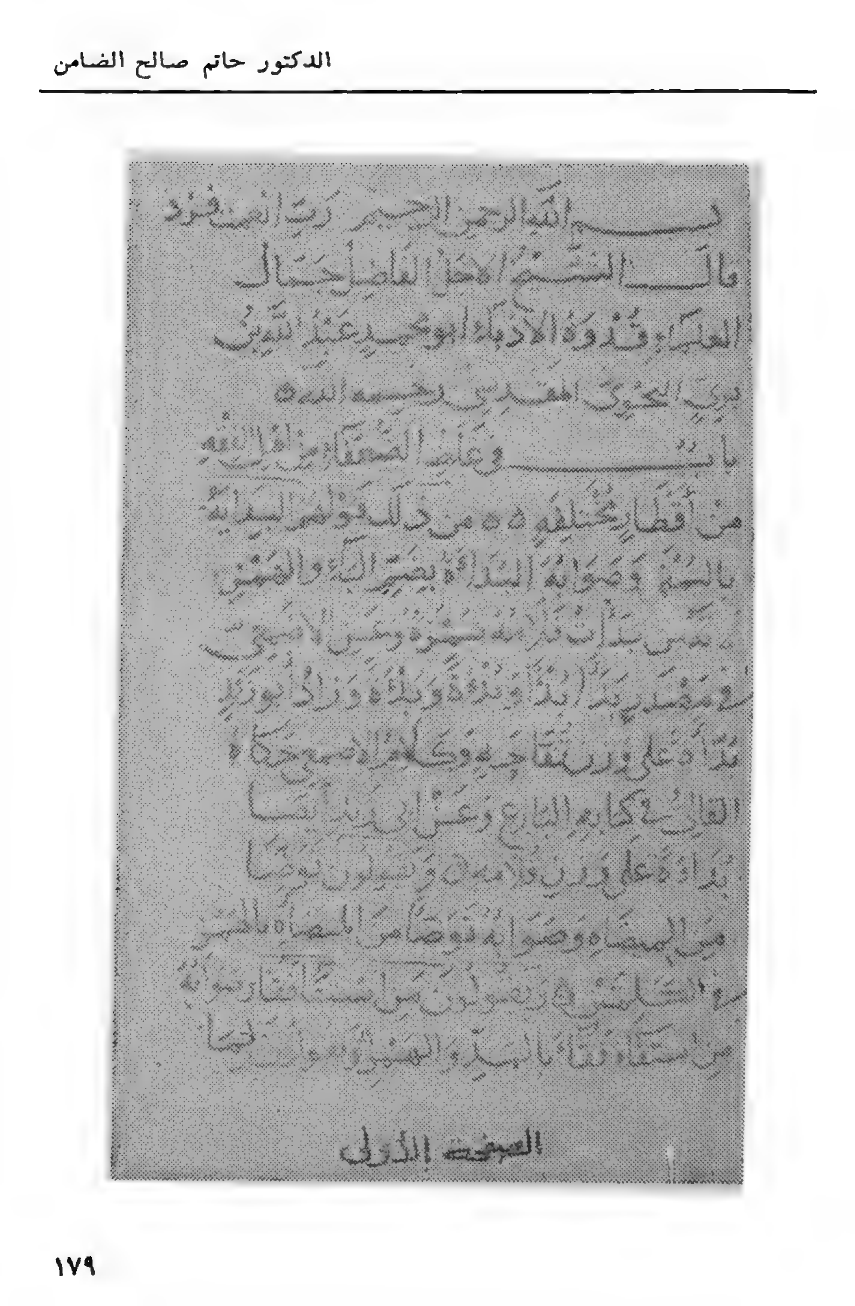 الدكتور حاتم صالح الضامن
بسم الله الرحمن الرحيم رب انعمت فزد
قال الشَّيْخُ الاجَلُّ الفَاضِلُ جَمَالُ
العلمَاءِ قُدْوَةُ الأُدَبَاءِ أبو محمدٍ عَبْدُ اللهِ بْنُ
بَرِّيٍّ النَّحْوِيُّ المَقْدِسِيُّ رحمه الله
بابُ غَلَطِ الضُّعَفَاءِ مِنْ أَهْلِ الفِقْهِ
مِنْ أَقْطَارٍ مُخْتَلِفَةٍ من ذلك قَوْلُهُم البِدَايَةُ
بالياءِ وَصَوَابُهُ البُدَاءَةُ بضَمِّ البَاءِ والهَمْزِ
بَدَأْتُ وعن الأصمعي
في مَصْدَرِ بَدَأَ بَدْأً وَبُدْءَةً وَبَدْأَةً وَزَادَ أبو زَيْدٍ
بَدَاءَةً على وزن وَكَلَامُ الأصمعي حَكَاهُ
القَالِيُّ في كتابِهِ البَارِعِ وعَنْ أبي زَيْدٍ أيضًا
بُدَاءَةً عَلَى وَزْنِ ويقولون تَوَضَّأَ
مِنَ المِيضَاةِ وَصَوَابُهُ تَوَضَّأَ مِنَ المِيضَأَةِ بالهَمْزِ
وَيَقُولُونَ مَنِ صَوَابُهُ
مَنِ اسْتَقَاءَ فَقَاءَ بالمَدِّ وَالهَمْزِ
الصفحة الأولى
١٧٩